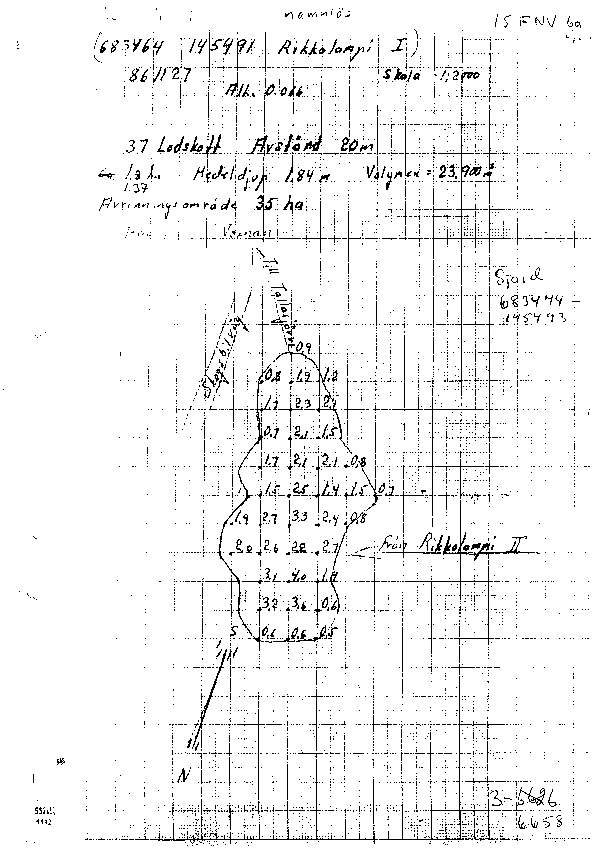 namnlös
15 F NV 6a
(683464 145491 Rikkolampi I)
86/127
Skala 1:2000
37 Lodskott Avstånd 20m
1.3 ha Medeldjup 1.84 m Volymen = 23.900 m³
1.37
Avrinningsområde 35 ha
Till Tallåsjärn
Skogsbilväg
Sjöid
683474 -
145473
0.9
0.8 1.9 1.2
1.7 2.3 2.1
0.7 2.1 1.5
1.7 2.1 2.1 0.8
1.5 2.5 1.4 1.5 0.7
1.9 2.7 3.3 2.4 0.8
2.0 2.6 2.8 2.7
Från Rikkolampi II
3.1 4.0 1.9
3.2 3.6 0.6
S 0.6 0.6 0.5
N
3-5626
6658